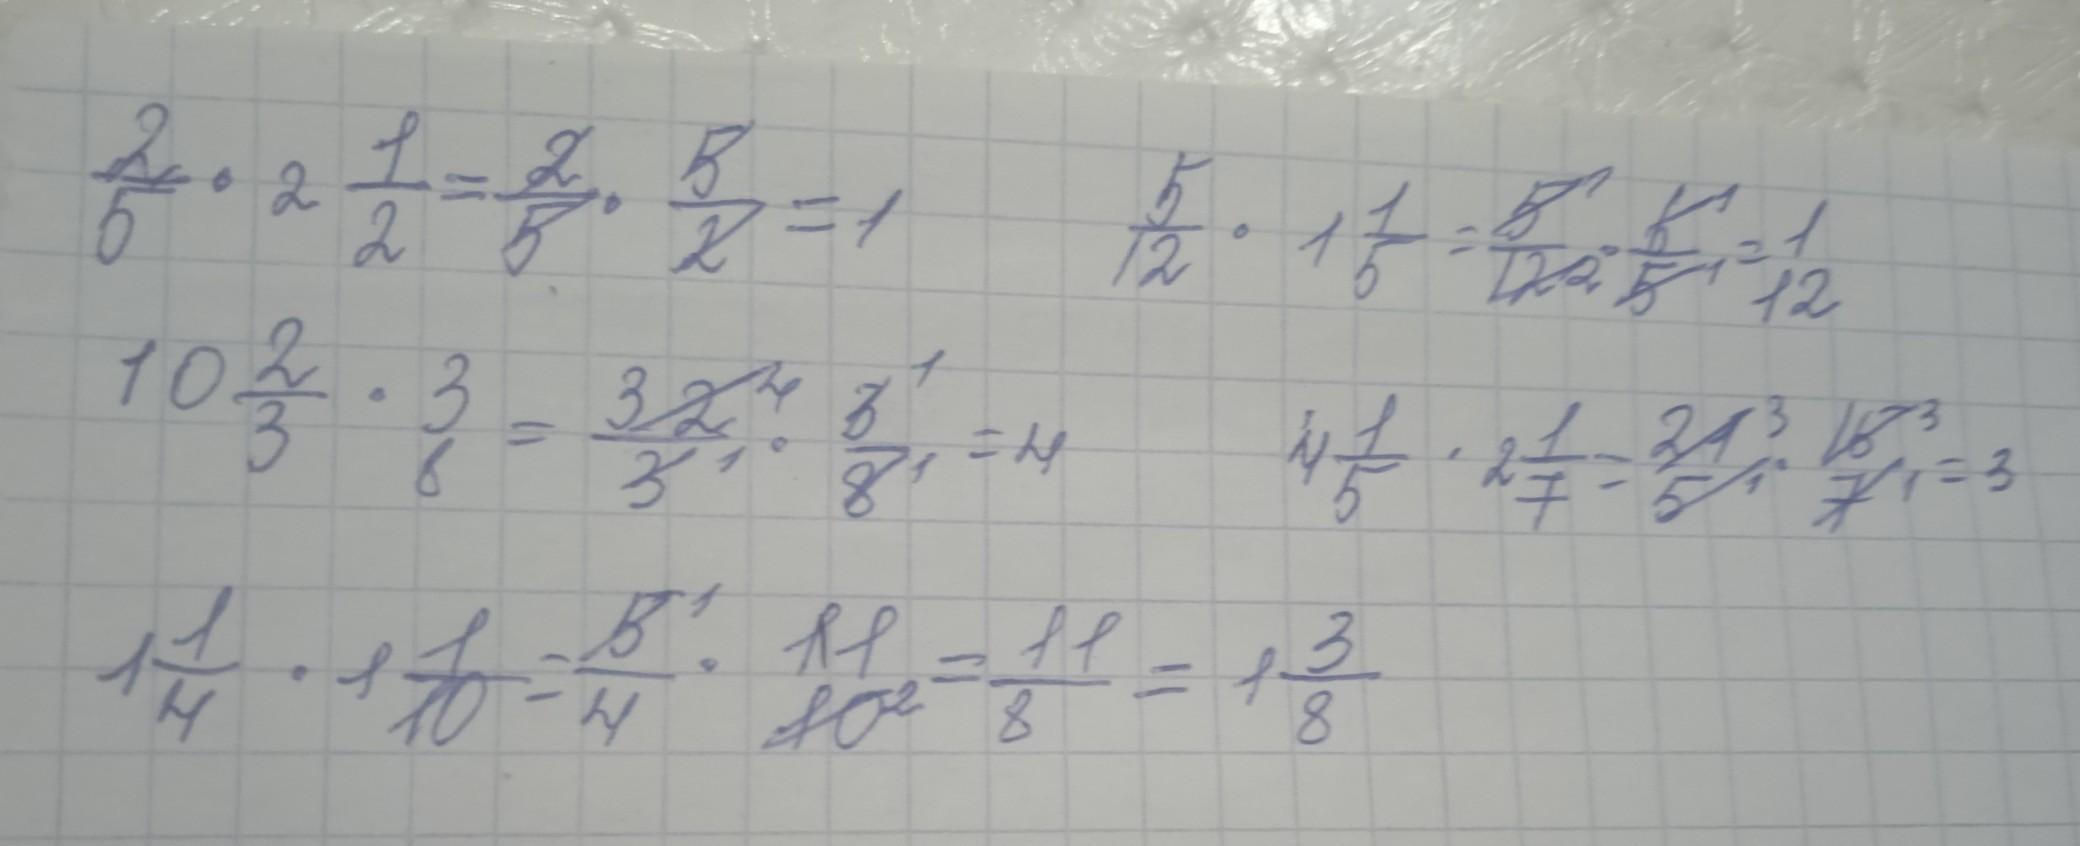 2/5 · 2 1/2 = 2/5 · 5/2 = 1
5/12 · 1 1/5 = 5¹/12² · 6¹/5¹ = 1/12
10 2/3 · 3/8 = 32⁴/3¹ · 3¹/8¹ = 4
4 1/5 · 2 1/7 = 21³/5¹ · 15³/7¹ = 3
1 1/4 · 1 1/10 = 5¹/4 · 11/10² = 11/8 = 1 3/8